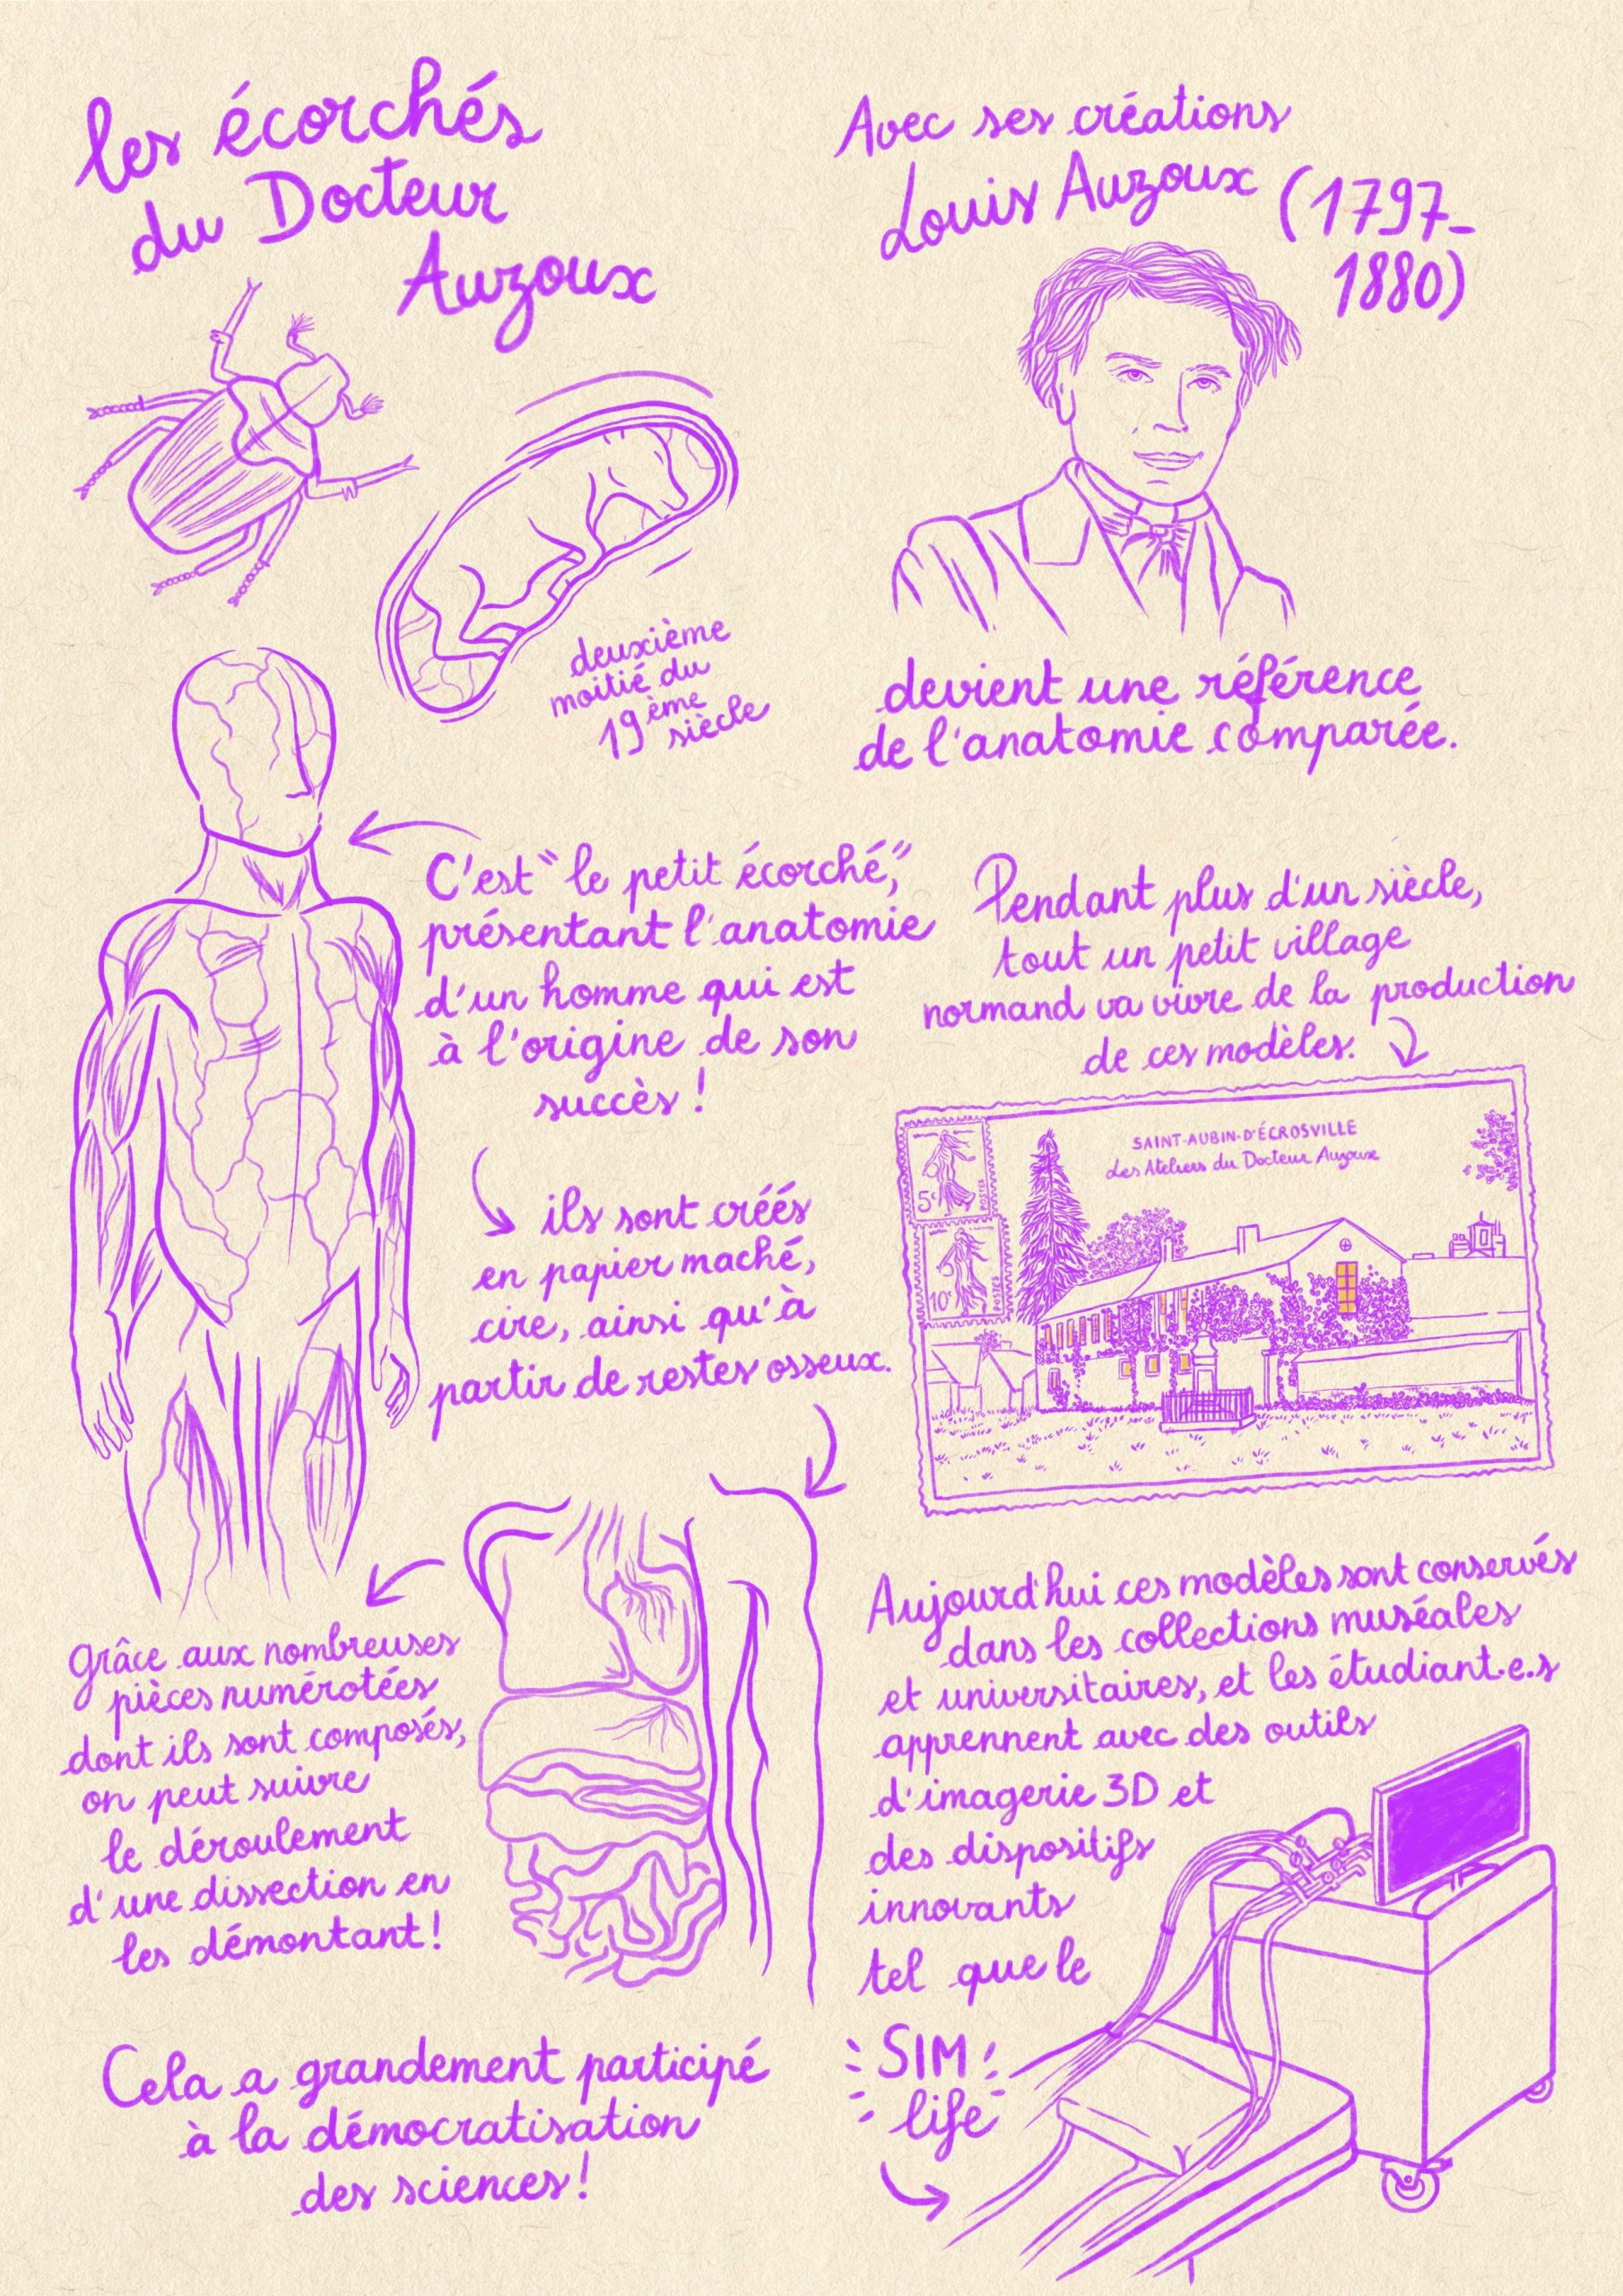 les écorchés
du Docteur
Auzoux
deuxième
moitié du
19ème
siècle
C'est "le petit écorché",
présentant l'anatomie
d'un homme qui est
à l'origine de son
succès !
ils sont créés
en papier maché,
cire, ainsi qu'à
partir de restes osseux.
Grâce aux nombreuses
pièces numérotées
dont ils sont composés,
on peut suivre
le déroulement
d'une dissection en
les démontant !
Cela a grandement participé
à la démocratisation
des sciences !
Avec ses créations
Louis Auzoux (1797-
1880)
devient une référence
de l'anatomie comparée.
Pendant plus d'un siècle,
tout un petit village
normand va vivre de la production
de ces modèles.
SAINT-AUBIN-D'ÉCROSVILLE
Les Ateliers du Docteur Auzoux
5c
POSTES
10c
Aujourd'hui ces modèles sont conservés
dans les collections muséales
et universitaires, et les étudiant.e.s
apprennent avec des outils
d'imagerie 3D et
des dispositifs
innovants
tel que le
SIM
life